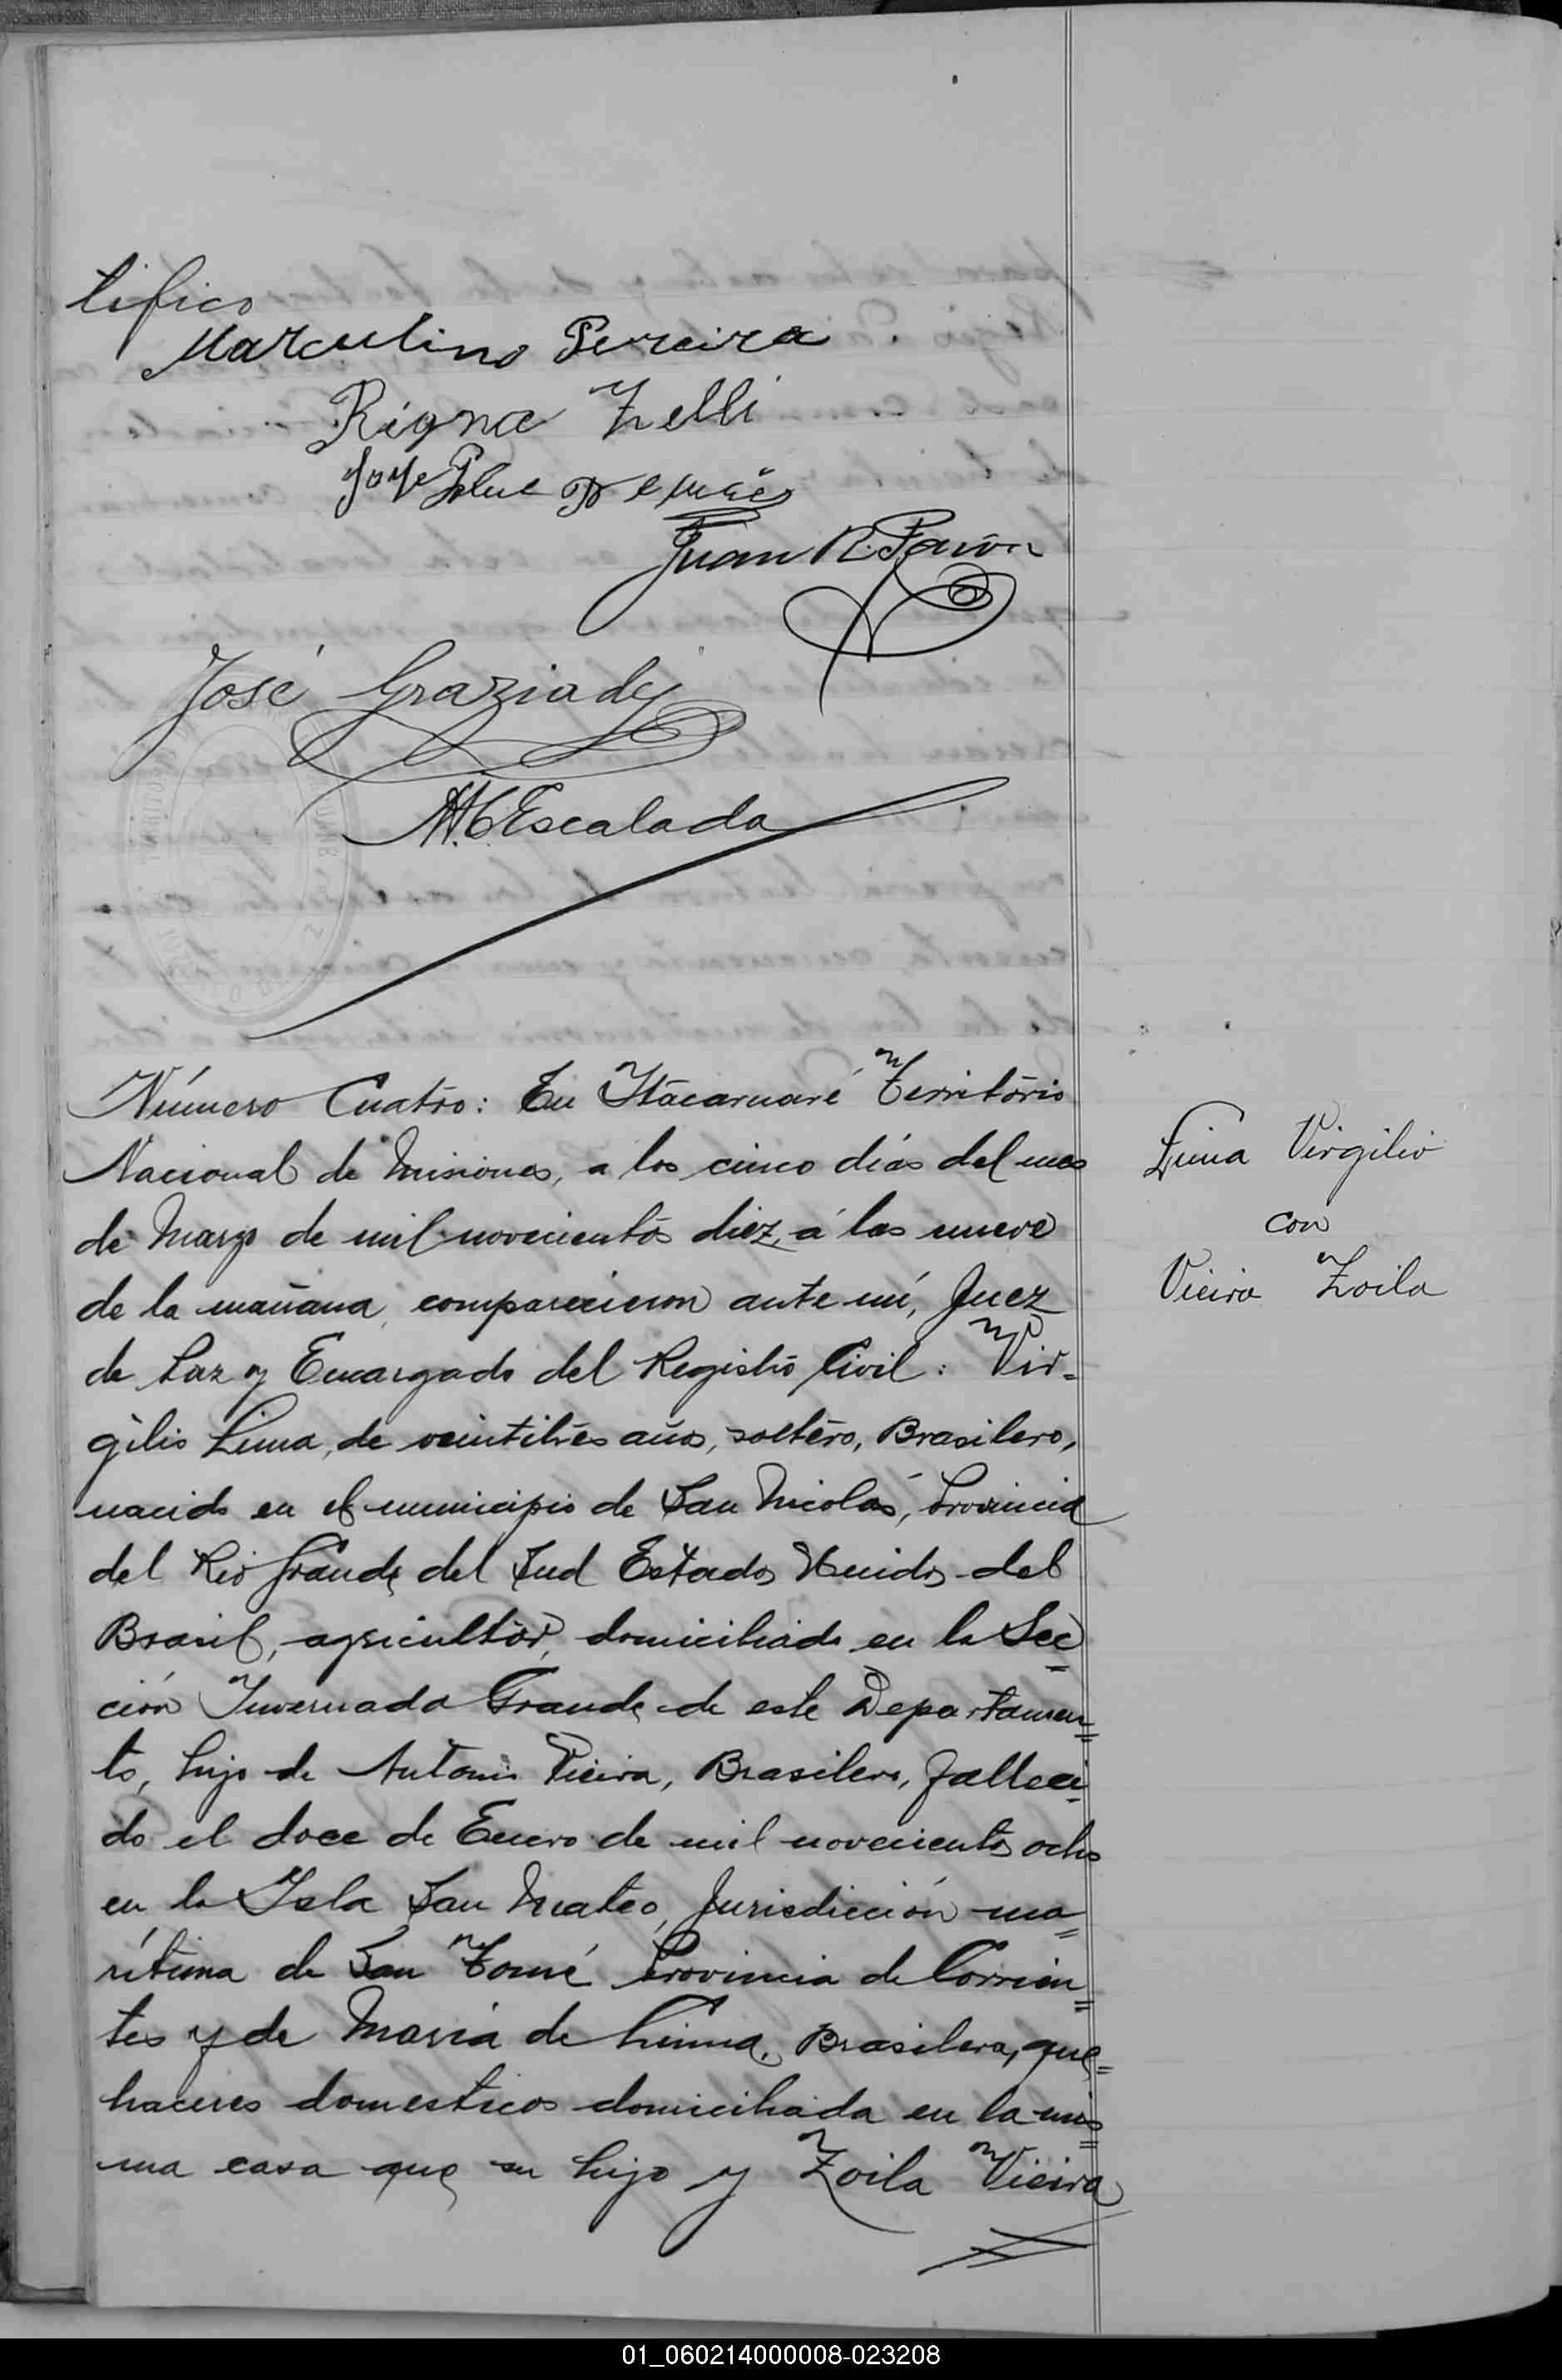 tifico
Marculino Pereira
Rigna Zelli
Jose
Juan R. Pavón
José Graziady
M. C. Escalada
Número Cuatro: En Itacaruaré Territorio
Nacional de Misiones, a los cinco días del mes
de Marzo de mil novecientos diez, á las nueve
de la mañana, comparecieron ante mí, Juez
de Paz y Encargado del Registro Civil: Vir=
gilio Lima, de veintitrés años, soltero, Brasilero,
nacido en el municipio de San Nicolás, Provincia
del Rio Grande del Sud Estados Unidos del
Brasil, agricultor, domiciliado en la Sec=
ción Invernada Grande de este Departamen=
to, hijo de Antonio Vieira, Brasilero, falleci=
do el doce de Enero de mil novecientos ocho
en la Isla San Mateo, Jurisdicción ma=
rítima de San Tomé Provincia de Corrien=
tes y de María de Lima, Brasilera, que=
haceres domesticos domiciliada en la mis=
ma casa que su hijo y Zoila Vieira
Lima Virgilio
con
Vieira Zoila
01_060214000008-023208